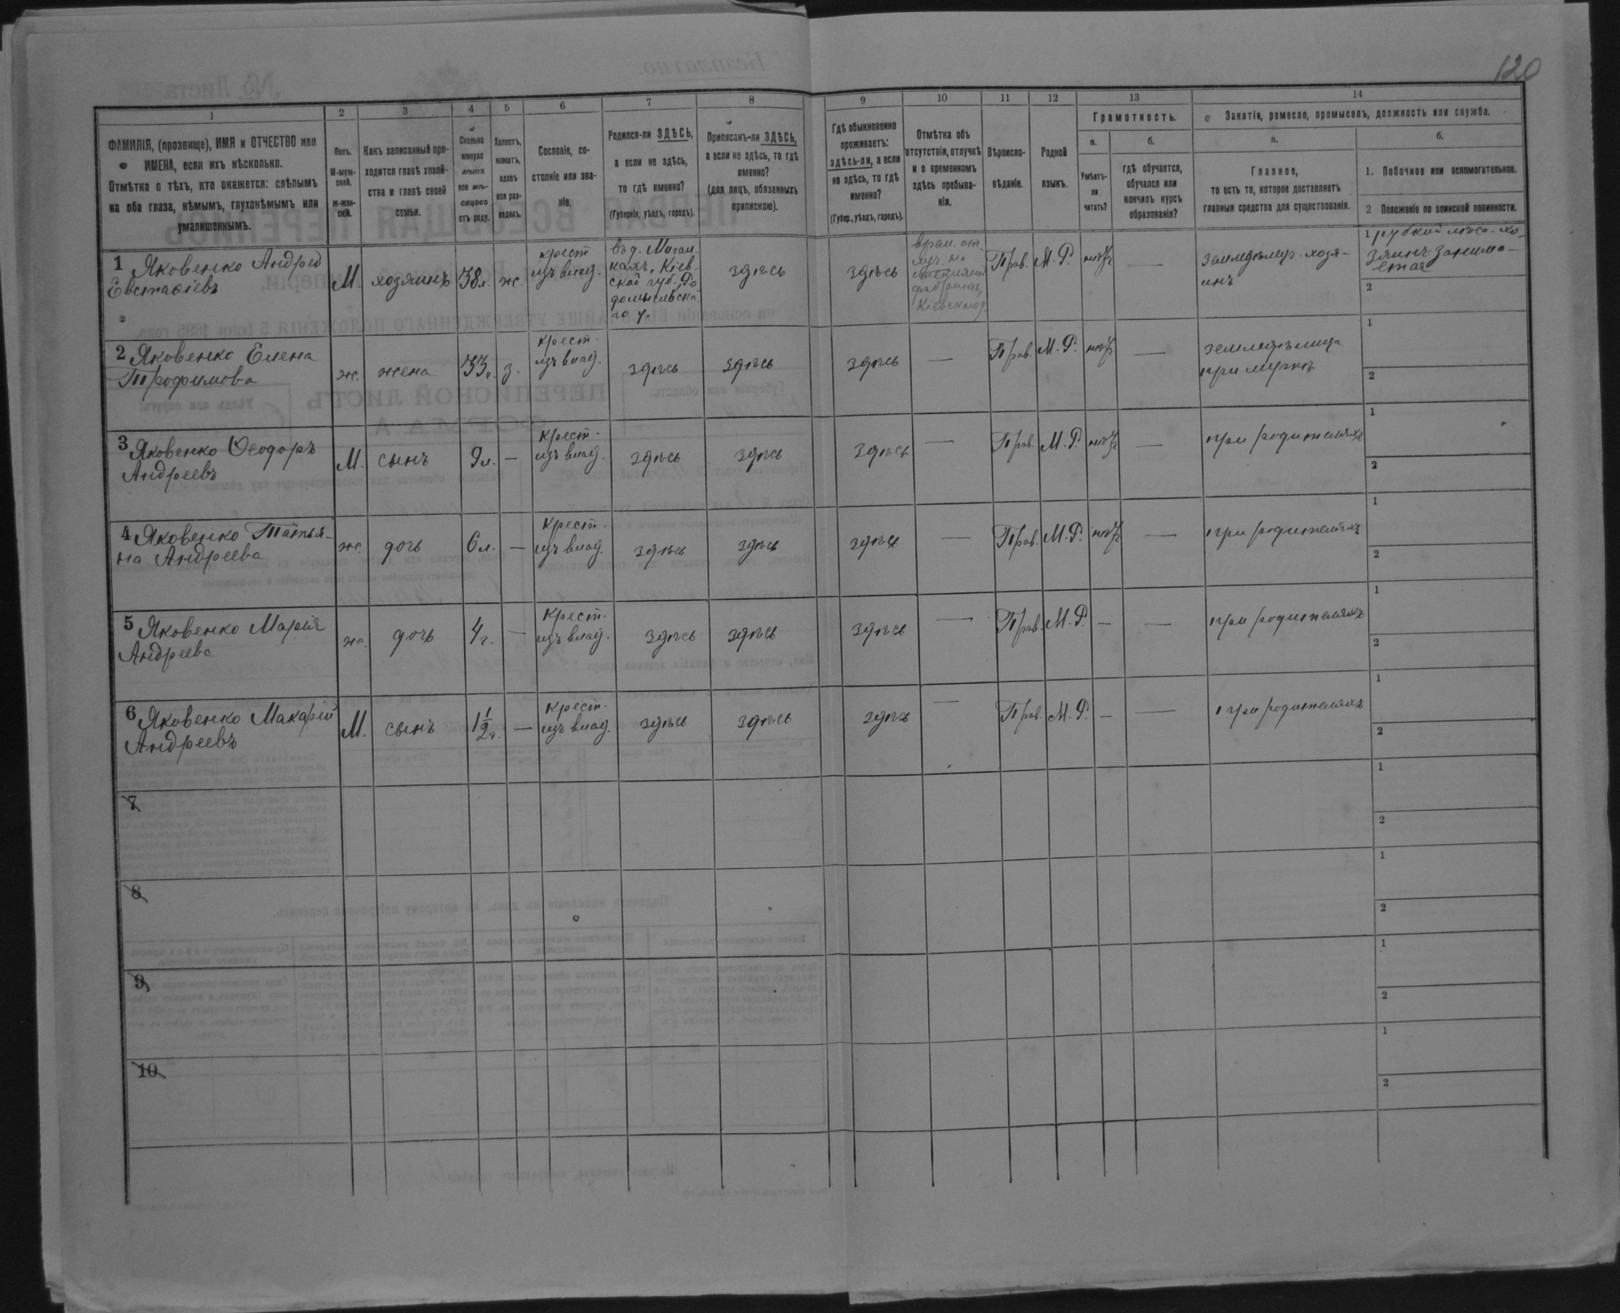 120
1
2
3
4
5
6
7
8
9
10
11
12
13
14
ФАМИЛІЯ, (прозвище), ИМЯ и ОТЧЕСТВО или
ИМЕНА, если ихъ нѣсколько.
Отмѣтка о тѣхъ, кто окажется: слѣпымъ
на оба глаза, нѣмымъ, глухонѣмымъ или
умалишеннымъ.
Полъ.
М-муж-
ской.
Ж-жен-
скій.
Какъ записанный при-
ходится главѣ хозяй-
ства и главѣ своей
семьи.
Сколько
минуло
лѣтъ
или мѣ-
сяцевъ
отъ роду.
Холостъ,
женатъ,
вдовъ
или раз-
веденъ.
Сословіе, со-
стояніе или зва-
ніе.
Родился-ли ЗДѢСЬ,
а если не здѣсь,
то гдѣ именно?
(Губернія, уѣздъ, городъ).
Приписанъ-ли ЗДѢСЬ,
а если не здѣсь, то гдѣ
именно?
(для лицъ, обязанныхъ
припискою).
Гдѣ обыкновенно
проживаетъ:
здѣсь-ли, а если
не здѣсь, то гдѣ
именно?
(Губер., уѣздъ, городъ).
Отмѣтка объ
отсутствіи, отлучкѣ
и о временномъ
здѣсь пребыва-
ніи.
Вѣроиспо-
вѣданіе.
Родной
языкъ.
Грамотность.
а.
б.
Умѣетъ-
ли
читать?
гдѣ обучается,
обучался или
кончилъ курсъ
образованія?
Занятіе, ремесло, промыселъ, должность или служба.
а.
б.
Главное,
то есть то, которое доставляетъ
главныя средства для существованія.
1. Побочное или вспомогательное.
2 Положеніе по воинской повинности.
1 Яковенко Андрей
Евстафіевъ
М. хозяинъ 38 л. ж.
крест.
изъ влад.
здѣсь
здѣсь
Прав. М. Р.
земледѣлецъ хозя-
инъ
1
2
2 Яковенко Елена
Трофимова
ж. жена 33 г. з.
крест.
изъ влад.
здѣсь здѣсь здѣсь —
Прав. М. Р. —
при мужѣ
1
2
3 Яковенко Ѳеодоръ
Андреевъ
М. сынъ 9 л. —
крест.
изъ влад.
здѣсь здѣсь здѣсь —
Прав. М. Р. —
при родителяхъ
1
2
4 Яковенко Татья-
на Андреева
ж. дочь 6 л. —
Крест.
изъ влад.
здѣсь здѣсь здѣсь —
Прав. М. Р. —
при родителяхъ
1
2
5 Яковенко Марія
Андреева
ж. дочь 4 г. —
Крест.
изъ влад.
здѣсь здѣсь здѣсь —
Прав. М. Р. — —
при родителяхъ
1
2
6 Яковенко Макарій
Андреевъ
М. сынъ 1½ г. —
крест.
изъ влад.
здѣсь здѣсь здѣсь —
Прав. М. Р. — —
при родителяхъ
1
2
7
1
2
8
1
2
9
1
2
10
1
2